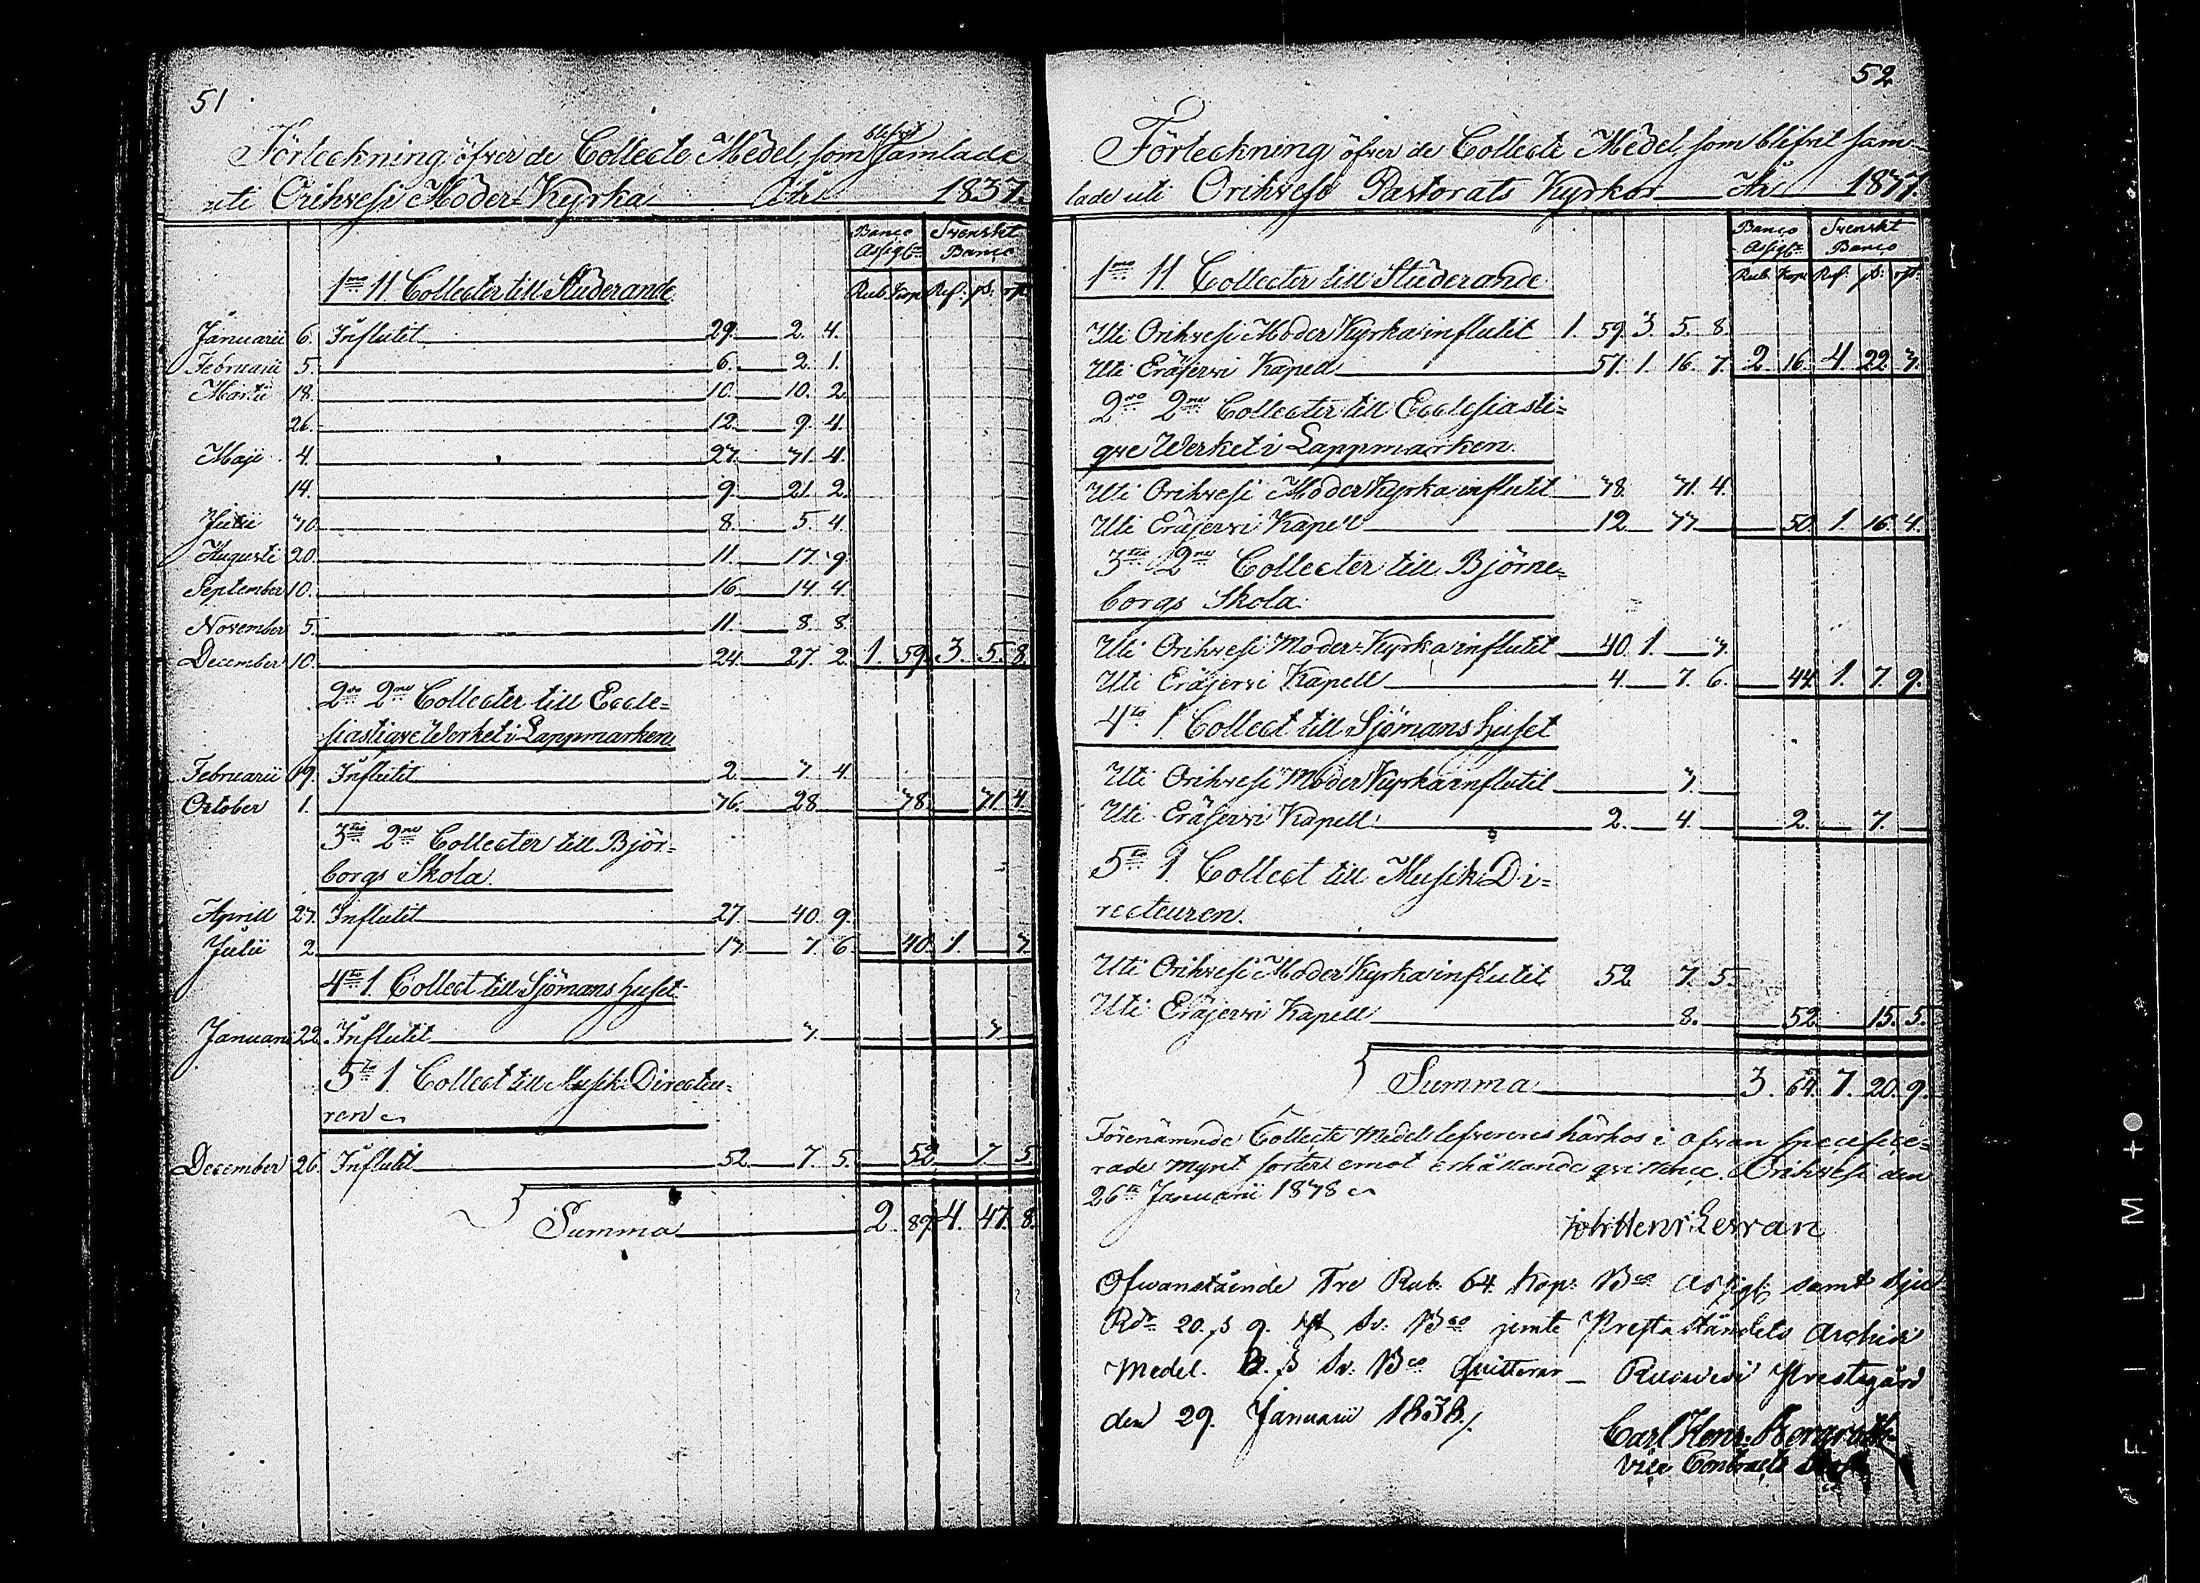 51
Förteckning öfver de Collecte Medel, som blifvit Samlade
uti Orihvesi Moder-Kyrka År 1837.
Banco Assigt: Svenskt Banco
1mo 11 Collecter till Studerande
Rub. Kop. Rd: ß: rst
Januarii 6. Influtit 29. 2. 4.
Februarii 5. 6. 2. 1.
Martii 18. 10. 10. 2
26. 12. 9. 4
Maji 4. 27. 71. 4.
14. 9. 21. 2.
70. 8. 5. 4
Augusti 20. 11. 17. 9.
September 10. 16. 14. 4.
November 5. 11. 8. 8.
December 10. 24. 27. 2. 1. 59. 3. 5. 8.
2do 2ne Collecter till Eccle=
siastiqve Werket i Lappmarken.
Februarii 19. Influtit 2. 7. 4.
October 1. 76. 28 78. 71. 4.
3tio 2ne Collecter till Björ=
borgs Skola.
Aprill 27. Influtit 27. 40. 9.
Julii 2. 17. 7. 6. 40. 1. 7.
4to 1 Collect till Sjömans huset
Januarii 22. Influtit 7. 7.
5to 1 Collect till Musik Directeu=
ren
December 26. Influtit 52. 7. 5. 52. 7. 5.
Summa 2. 89. 4. 47. 8.
52
Förteckning öfver de Collecte Medel som blifvit sam-
lade uti Orihvesi Pastorats Kyrkor År 1877.
Banco Assigt: Svenskt Banco
1mo 11 Collecter till Studerande
Rub. Kop. Rd: ß: rst:
Uti Orihvesi Moder Kyrka influtit 1. 59. 3. 5. 8.
Uti Eräjervi Kapell 57. 1. 16. 7. 2. 16. 4. 22. 7.
2do 2ne Collecter till Ecclesiasti=
qve Werket i Lappmarken.
Uti Orihvesi Moder Kyrka influtit 78. 71. 4.
Uti Eräjervi Kapell 12. 77 50. 1. 16. 4.
3tio 2ne Collecter till Björne=
borgs Skola.
Uti Orihvesi Moder-Kyrka influtit 40. 1. 7.
Uti Eräjervi Kapell 4. 7. 6. 44. 1. 7. 9.
4to 1 Collect till Sjömans huset
Uti Orihvesi Moder Kyrka influtit 7.
Uti Eräjervi Kapell 2. 4. 2. 7.
5to 1 Collect till Musik Di=
recteuren.
Uti Orihvesi Moder Kyrka influtit 52 7. 5.
Uti Eräjervi Kapell 8. 52 15. 5.
Summa 3. 64. 7. 20. 9.
Förenämnde Collecte Medel lefvereras härhos i ofvan specifice=
rade mynt sorter emot erhållande qvittence. Orihvesi den
26te Januarii 1878
Joh: Henr: Levvan
Ofwanstående Tre Rub. 64. Kop: Bco Assigt: samt sju
Rdr 20. ß 9. rst Sv: Bco jemte Prestaståndets Archiv
Medel. ß Sv: Bco Quitterar Ruovesi Prestgård
den 29. Januarii 1838.
Carl Henr: Bergroth
Vice Contracts
A F I L M